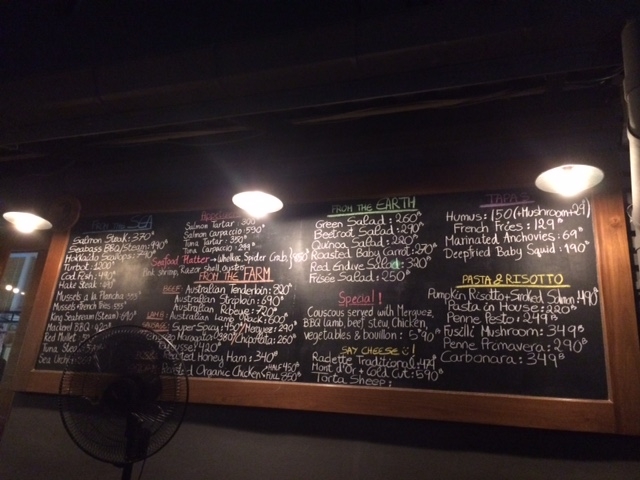 Salmon Steak: 390฿
Seabass BBQ/Steam: 490฿
Hokkaido Scallops: 
Turbot: 
Cod Fish: 490฿
Hake Steak: 
Mussels à la Plancha
Mussels + French Fries
King Seabream (Steam) 690฿
Mackerel BBQ 
Red Mullet
Tuna Steak
Sea Urchin
Salmon Tartar: 
Salmon Carpaccio: 390฿
Tuna Tartar: 350฿
Tuna Carpaccio: 
Seafood Platter → Whelks, Spider Crab,
Pink shrimp, Razor Shell, oysters
FROM THE FARM
BEEF: Australian Tenderloin: 890฿
Australian Striploin: 690฿
Australian Ribeye: 720฿
LAMB: Australian Lamb Rack: 600฿
SAUSAGE Super Spicy: 450฿ Merguez: 290฿
Chipolata: 260฿
420฿
Roasted Honey Ham: 340฿
Roasted Organic Chicken HALF 450฿
FULL 850฿
FROM THE EARTH
Green Salad: 260฿
Beetroot Salad: 290฿
Quinoa Salad: 220฿
Roasted Baby Carrot: 270฿
Red Endive Salad: 320฿
Frisée Salad: 250฿
Special!
Couscous served with Merguez,
BBQ lamb, beef stew, Chicken,
vegetables & bouillon: 590฿
SAY CHEESE!
Raclette Traditional: 
Mont d'or + Cold Cut: 590฿
Torta Sheep:
TAPAS
Humus: 150 (+Mushroom+29)
French Fries: 129฿
Marinated Anchovies: 69฿
Deepfried Baby Squid: 190฿
PASTA & RISOTTO
Pumpkin Risotto + Smoked Salmon: 490฿
Pasta on House: 220฿
Penne Pesto: 249฿
Fusilli Mushroom: 349฿
Penne Primavera: 290฿
Carbonara: 349฿